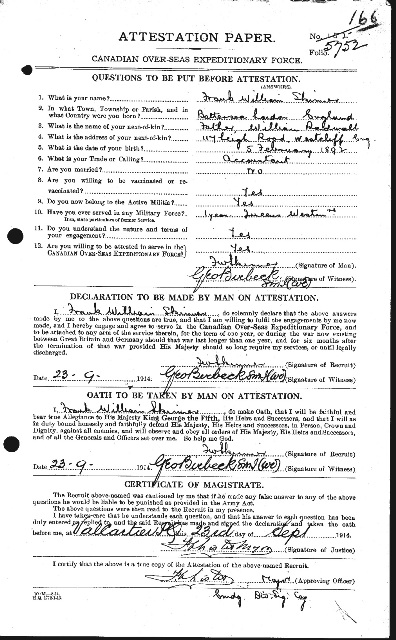 166
ATTESTATION PAPER.
No.
Folio. 5752
CANADIAN OVER-SEAS EXPEDITIONARY FORCE.
QUESTIONS TO BE PUT BEFORE ATTESTATION.
(ANSWERS).
1. What is your name? Frank William
2. In what Town, Township or Parish, and in
what Country were you born? Battersea London England
3. What is the name of your next-of-kin? Father, William
4. What is the address of your next-of-kin? Leigh Road, Westcliff Eng
5. What is the date of your birth? 5 February 1892
6. What is your Trade or Calling? Accountant
7. Are you married? No
8. Are you willing to be vaccinated or re-
vaccinated? Yes
9. Do you now belong to the Active Militia? Yes
10. Have you ever served in any Military Force? 1 year Queens
If so, state particulars of former Service.
11. Do you understand the nature and terms of
your engagement? Yes
12. Are you willing to be attested to serve in the
CANADIAN OVER-SEAS EXPEDITIONARY FORCE? Yes
(Signature of Man).
Geo Birbeck (Signature of Witness).
DECLARATION TO BE MADE BY MAN ON ATTESTATION.
I, Frank William , do solemnly declare that the above answers
made by me to the above questions are true, and that I am willing to fulfil the engagements by me now
made, and I hereby engage and agree to serve in the Canadian Over-Seas Expeditionary Force, and to
be attached to any arm of the service therein, for the term of one year, or during the war now existing
between Great Britain and Germany should that war last longer than one year, and for six months after
the termination of that war provided His Majesty should so long require my services, or until legally
discharged.
(Signature of Recruit)
Date 23-9- 1914. Geo Birbeck (Signature of Witness)
OATH TO BE TAKEN BY MAN ON ATTESTATION.
I, Frank William , do make Oath, that I will be faithful and
bear true Allegiance to His Majesty King George the Fifth, His Heirs and Successors, and that I will as
in duty bound honestly and faithfully defend His Majesty, His Heirs and Successors, in Person, Crown and
Dignity, against all enemies, and will observe and obey all orders of His Majesty, His Heirs and Successors,
and of all the Generals and Officers set over me. So help me God.
(Signature of Recruit)
Date 23-9- 1914 Geo Birbeck (Signature of Witness)
CERTIFICATE OF MAGISTRATE.
The Recruit above-named was cautioned by me that if he made any false answer to any of the above
questions he would be liable to be punished as provided in the Army Act.
The above questions were then read to the Recruit in my presence.
I have taken care that he understands each question, and that his answer to each question has been
duly entered as replied to, and the said Recruit has made and signed the declaration and taken the oath
before me, at Valcartier this 23rd day of Sept 1914.
(Signature of Justice)
I certify that the above is a true copy of the Attestation of the above-named Recruit.
Major (Approving Officer)
Cmdg Div. Sig. Coy